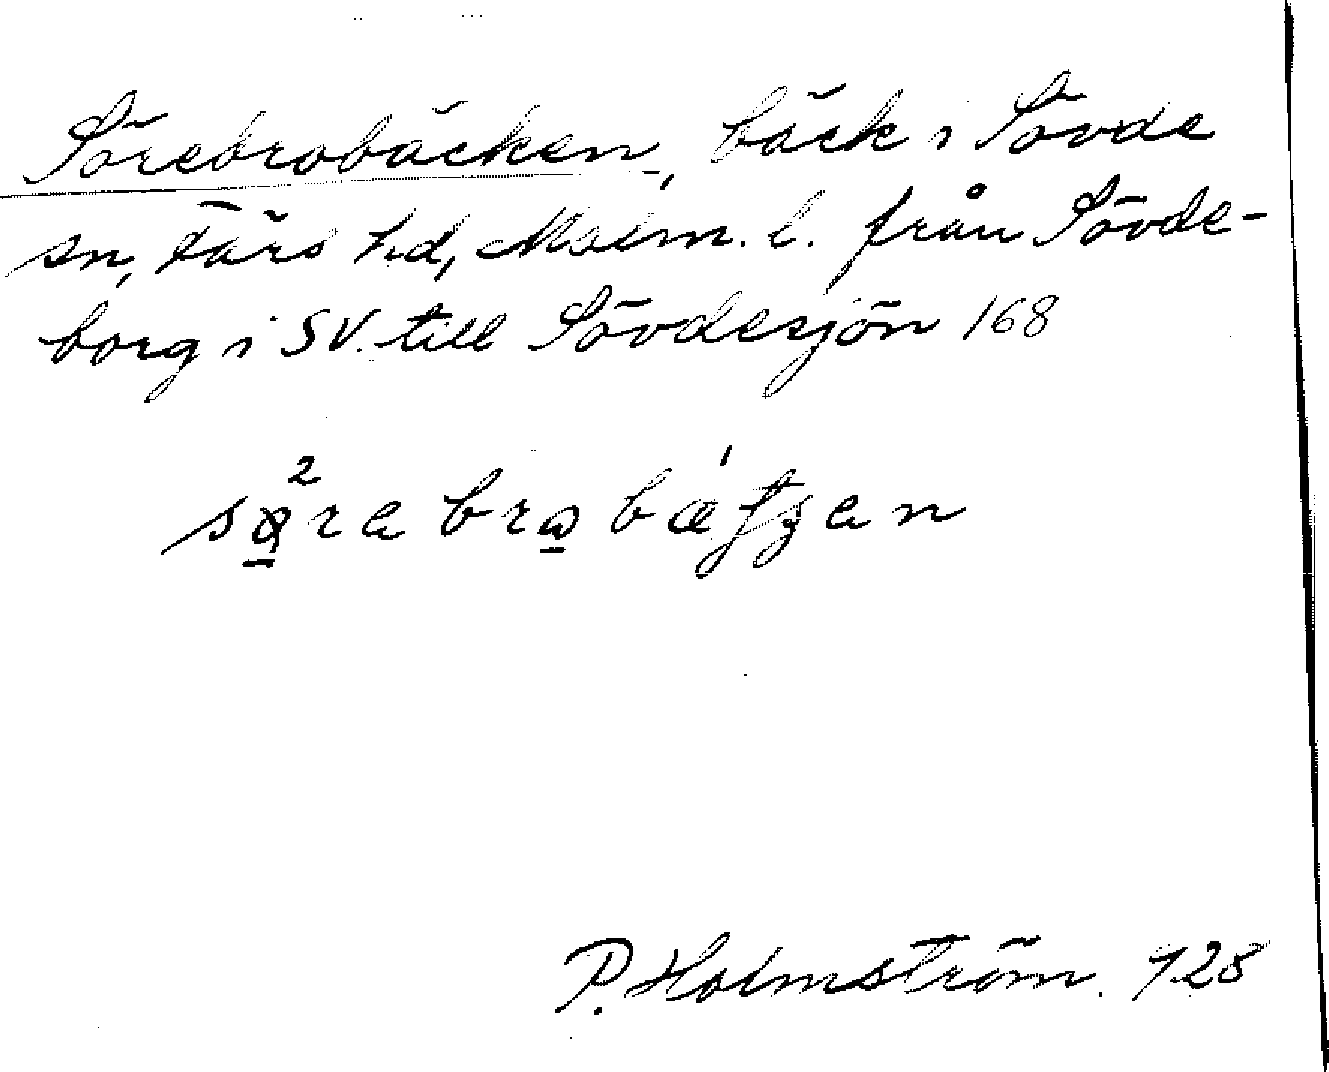 Sörebrobäcken, bäck i Sövde
sn, Färs hd, Malm. l. från Sövde-
borg i SV. till Sövdesjön 168
P. Holmström. 928